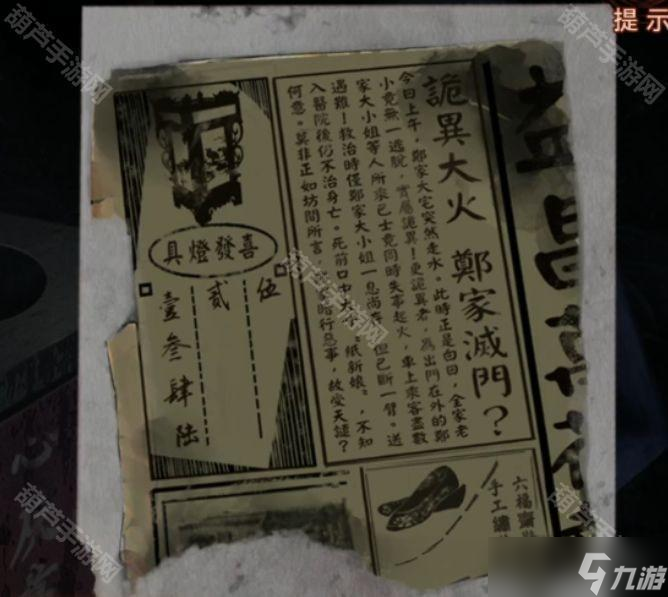 提示
益昌
詭異大火 鄭家滅門？
今日上午，鄭家大宅突然走水。此時正是白日，全家老
小竟無一逃脫，實屬詭異！更詭異者，為出門在外的鄭
家大小姐等人所乘巴士竟同時失事起火，車上乘客盡數
遇難！救治時僅鄭家大小姐一息尚存，但已斷一臂。送
入醫院後仍不治身亡。死前口中大 “紙新娘”，不知
何意。莫非正如坊間所言， 暗行惡事，故受天譴？
喜發燈具
伍
貳
壹叁肆陸
六福齋
手工繡
葫芦手游网
葫芦手游网
葫芦手游网
葫芦手游网
葫芦手游网
九游